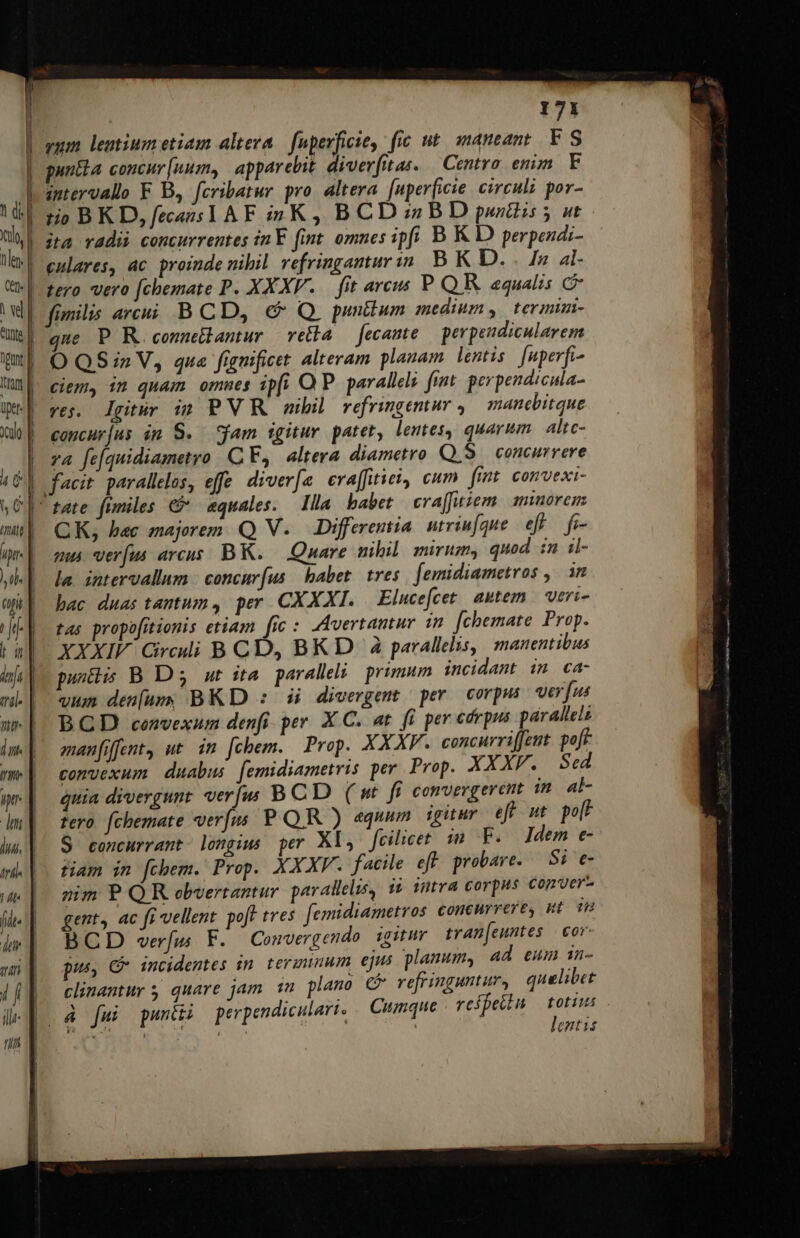 171
rum lentium etiam altera ſuperficie, ſic ut maneant F S
puncta concurſuum, apparebit diverſitas. Centro enim F
intervallo F B, ſcribatur pro altera ſuperficie circuli por-
tio B K D, ſecans I A F in K, B C D in B D punctis; ut
ita radii concurrentes in F ſint omnes ipſi B K D perpendi-
culares, ac proinde nihil refringantur in B K D. In al-
tero vero ſchemate P. XXXV. ſit arcus P Q R æqualis &
ſimilis arcui B C D, & Q punctum medium, termini-
que P R connectantur recta ſecante perpendicularem
O Q S in V, quæ ſignificet alteram planam lentis ſuperfi-
ciem, in quam omnes ipſi O P paralleli ſint perpendicula-
res. Igitur in P V R nihil refringentur, manebitque
concurſus in S. Jam igitur patet, lentes, quarum alte-
ra ſeſquidiametro C F, altera diametro Q S concurrere
facit parallelos, eſſe diverſæ craſſitiei, cum ſint convexi-
tate ſimiles & æquales. Illa habet craſſitiem minorem
C K, hæc majorem Q V. Differentia utriuſque eſt ſi-
nus verſus arcus B K. Quare nihil mirum, quod in il-
la intervallum concurſus habet tres ſemidiametros, in
hac duas tantum, per CXXXI. Eluceſcet autem veri-
tas propoſitionis etiam ſic: Avertantur in ſchemate Prop.
XXXIV Circuli B C D, B K D à parallelis, manentibus
punctis B D; ut ita paralleli primum incidant in ca-
vum denſum B K D: ii divergent per corpus verſus
B C D convexum denſi per X C. at ſi per corpus paralleli
manſiſſent, ut in ſchem. Prop. XXXV. concurriſſent poſt
convexum duabus ſemidiametris per Prop. XXXV. Sed
quia divergunt verſus B C D (ut ſi convergerent in al-
tero ſchemate verſus P Q R) æquum igitur eſt ut poſt
S concurrant longius per XI, ſcilicet in F. Idem e-
tiam in ſchem. Prop. XXXV. facile eſt probare. Si e-
nim P Q R obvertantur parallelis, ii intra corpus conver-
gent, ac ſi vellent poſt tres ſemidiametros concurrere, ut in
B C D verſus F. Convergendo igitur tranſeuntes cor-
pus, & incidentes in terminum ejus planum, ad eum in-
clinantur; quare jam in plano & refringuntur, quælibet
à ſui puncti perpendiculari. Cumque reſpectu totius
lentis